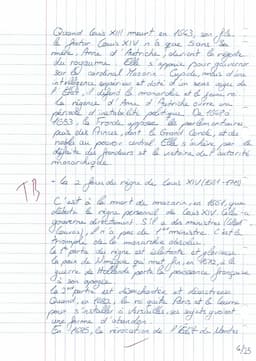 Quand Louis XIII meurt en 1643, son fils,
le futur Louis XIV n'a que 5 ans. Sa
mère, Anne d'Autriche, devient la régente
du royaume. Elle s'appuie pour gouverner
sur le cardinal Mazarin. Cupide, mais d'une
intelligence supérieure et doté d'un sens aigu de
l'Etat, il défend la monarchie et le jeune roi.
La régence d'Anne d'Autriche ouvre une
période d'instabilité politique. De 1648 à
1653, la Fronde oppose les parlementaires
puis des Princes, dont le Grand Condé, et des
nobles au pouvoir central. Elle s'achève par la
défaite des frondeurs et la victoire de l'autorité
monarchique.
TB
- les 2 faces du règne de Louis XIV (1661-1715)
C'est à la mort de Mazarin, en 1661, que
débute le règne personnel de Louis XIV. Celui-ci
gouverne directement. S'il a des ministres (Colbert,
Louvois), il n'a pas de 1er ministre. C'est le
triomphe de la monarchie absolue.
La 1e partie du règne est éclatante et glorieuse.
La paix de Nimègue qui met fin, en 1678, à la
guerre de Hollande porte la puissance française
à son apogée.
La 2nde partie est
Quand, en 1682, le roi quitte Paris et le Louvre
pour s'installer à Versailles, ses sujets
une forme d'abandon.
En 1685, la révocation de l'Edit de Nantes
4/25